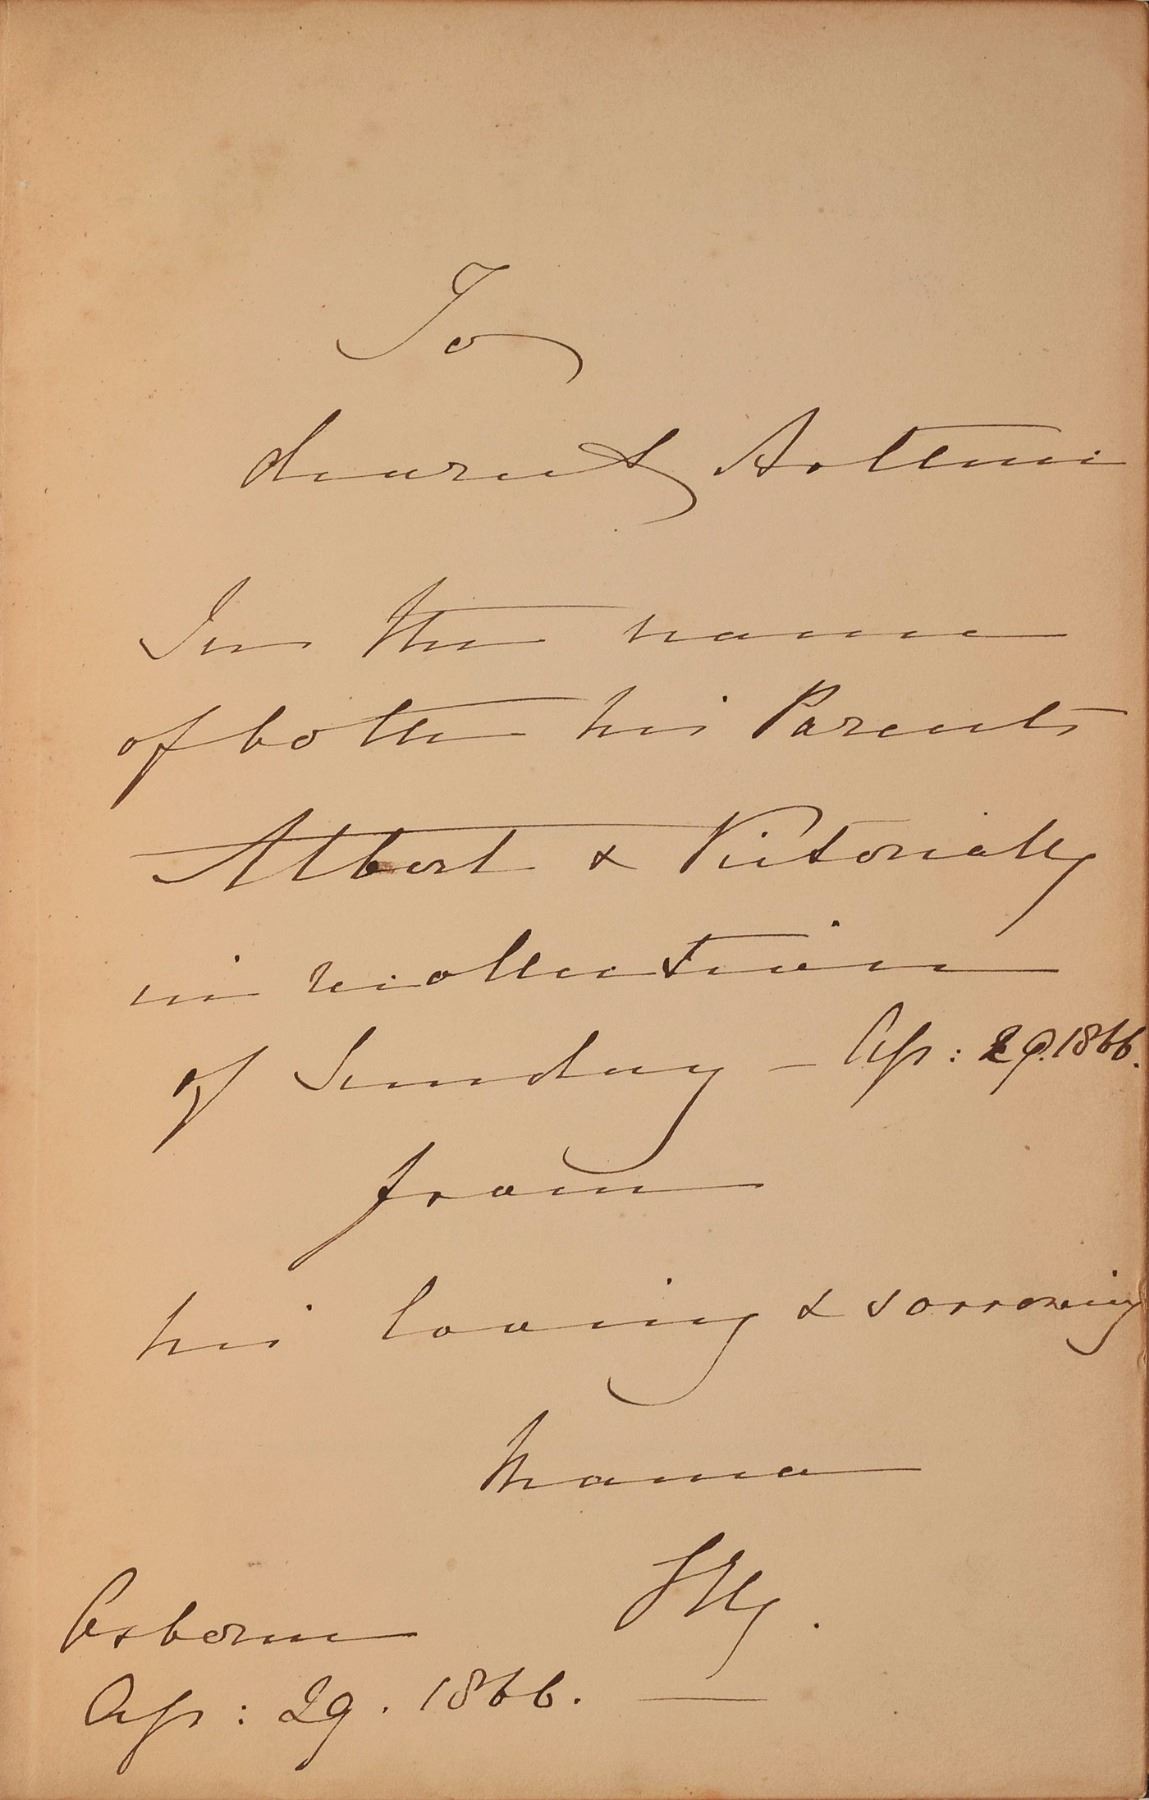 To
dearest Arthur
In the name
of both his Parents
Albert & Victoria
in recollection
of Sunday – Apr: 29. 1866.
from
his loving & sorrowing
Mama
VRg.
Osborne
Apr: 29. 1866.